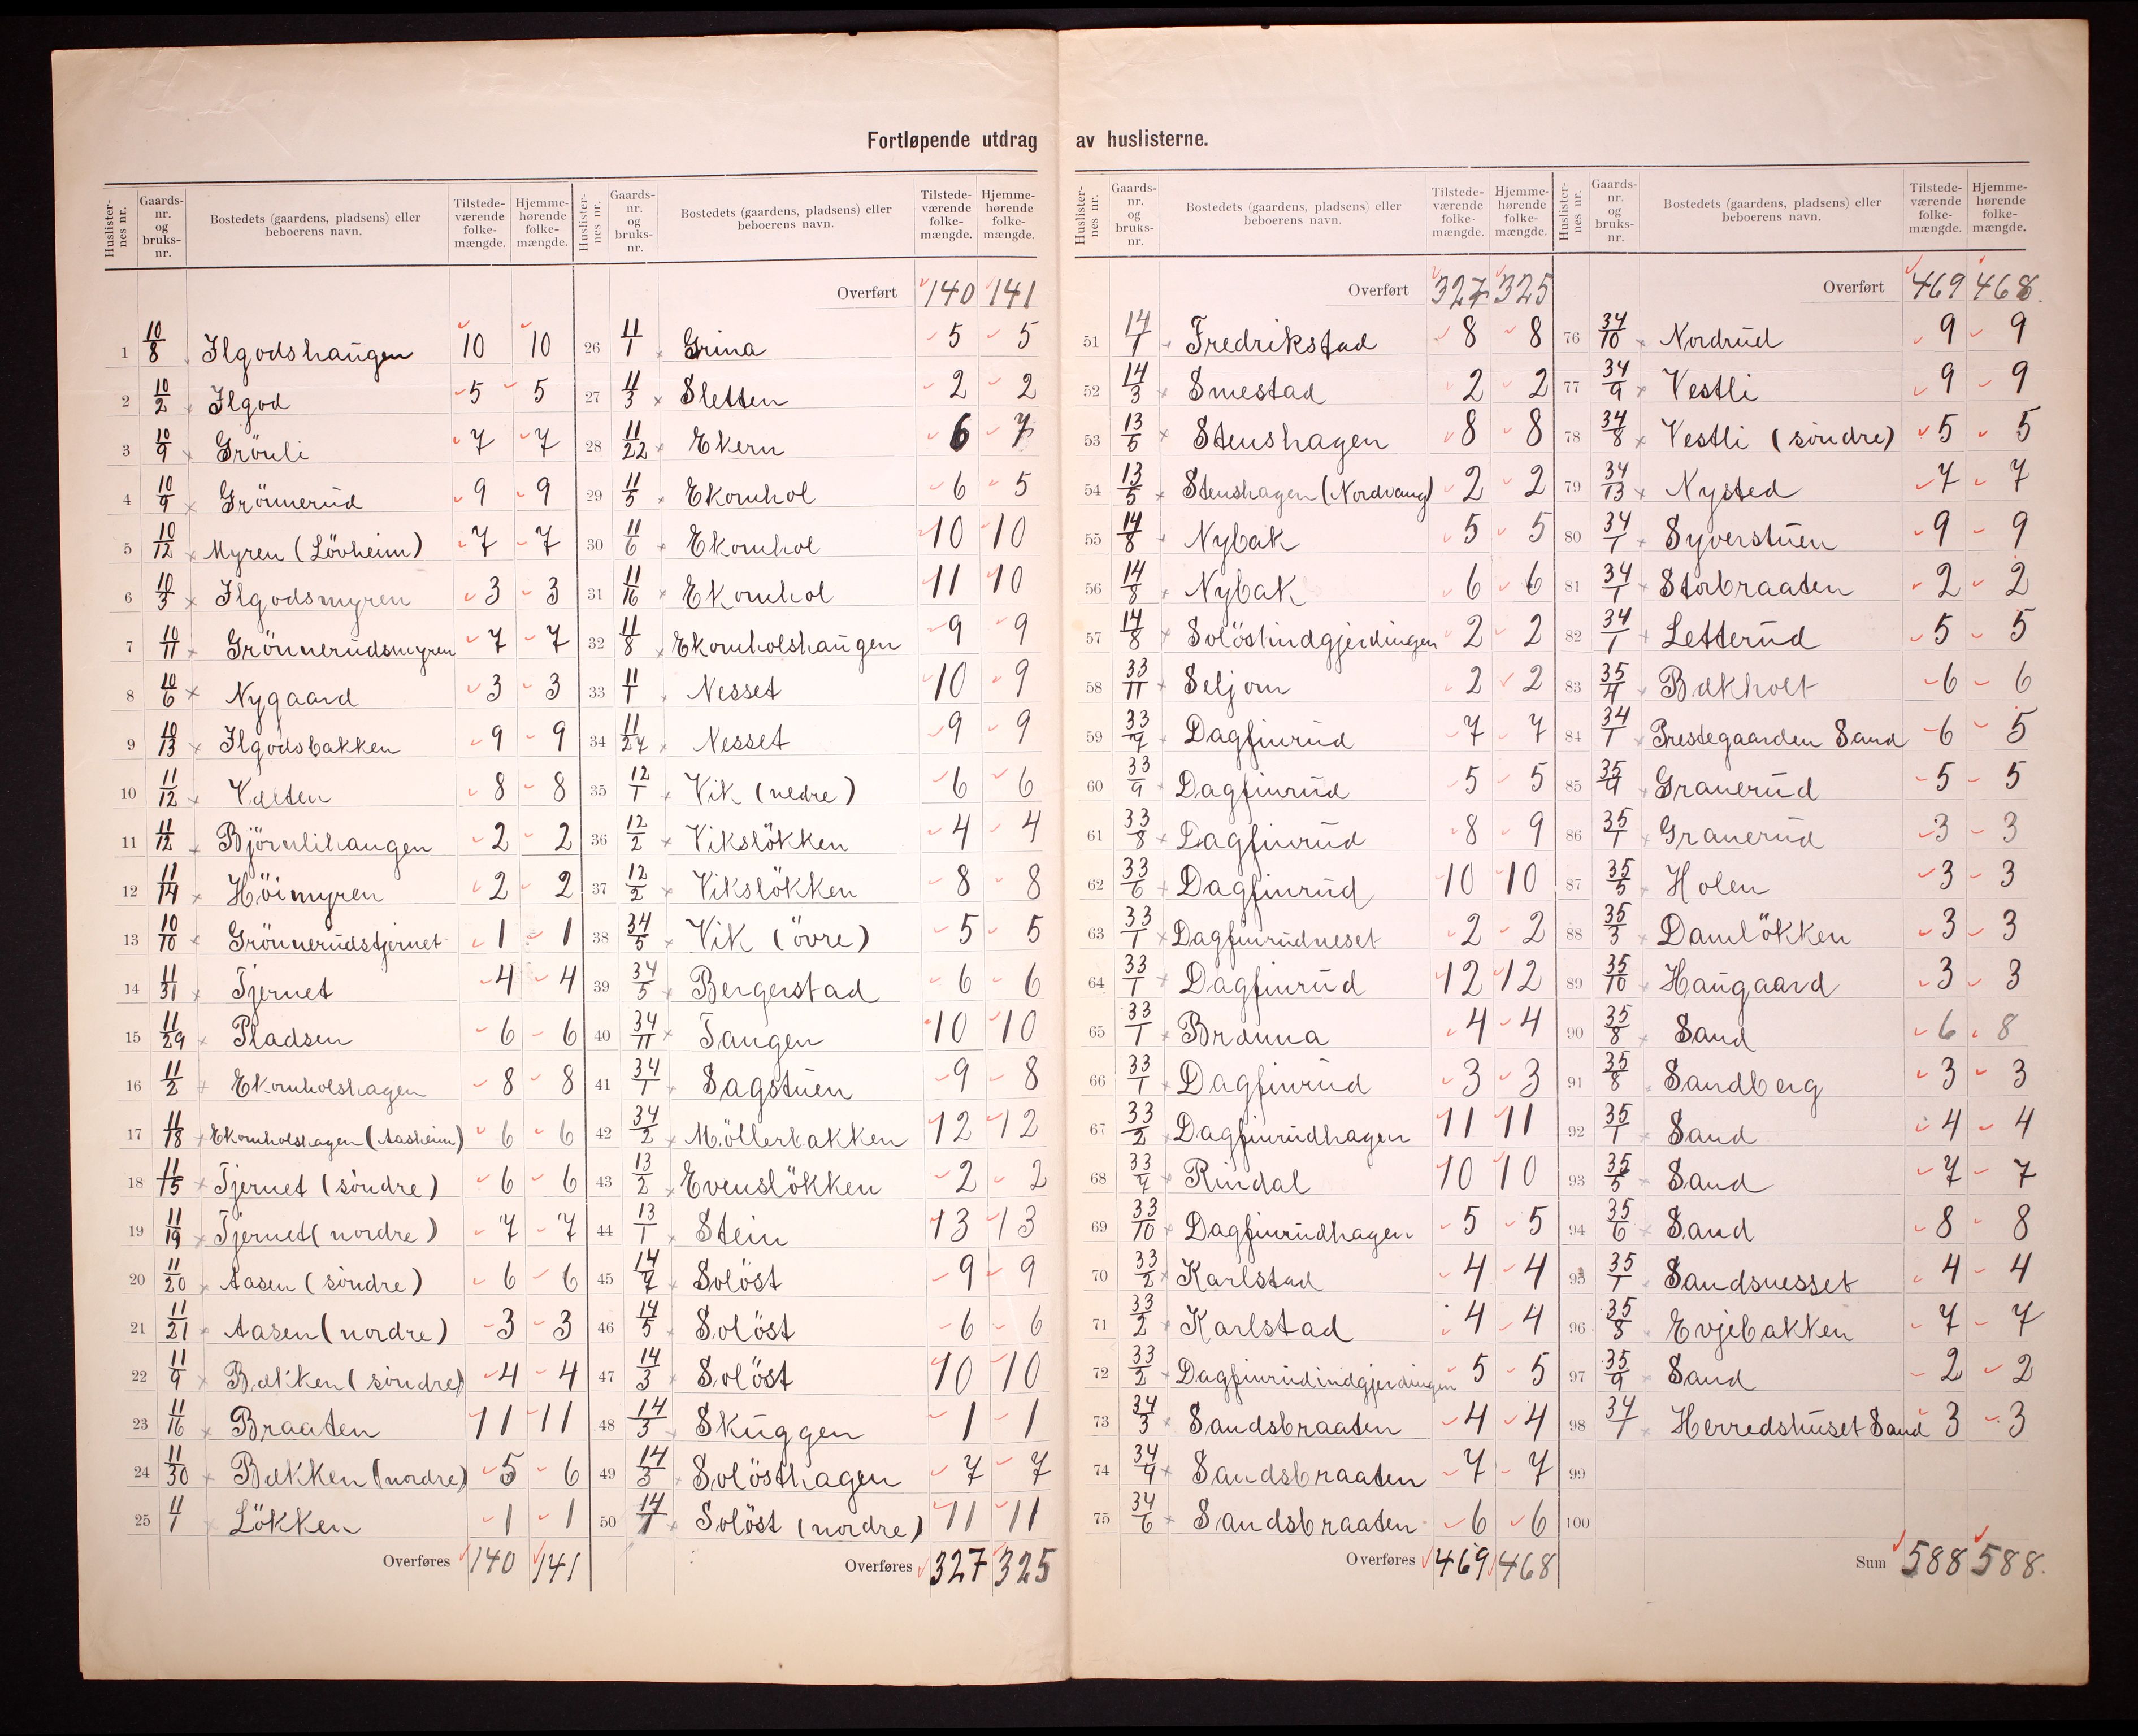 Fortløpende utdrag av huslisterne.
Huslister-nes nr. | Gaards-nr. og bruks-nr. | Bostedets (gaardens, pladsens) eller beboerens navn. | Tilstede-værende folke-mængde. | Hjemme-hørende folke-mængde.
1 10/8 Ilgodshaugen 10 10
2 10/2 Ilgod 5 5
3 10/9 Grönli 7 7
4 10/9 Grönnerud 9 9
5 10/12 Myren (Lövheim) 7 7
6 10/3 Ilgodsmyren 3 3
7 10/11 Grönnerudsmyren 7 7
8 10/6 Nygaard 3 3
9 10/13 Ilgodsbakken 9 9
10 11/12 Velten 8 8
11 11/12 Björnlihaugen 2 2
12 11/14 Höimyren 2 2
13 10/10 Grönnerudstjernet 1 1
14 11/31 Tjernet 4 4
15 11/29 Pladsen 6 6
16 11/2 Ekornholshagen 8 8
17 11/18 Ekornholshagen (Aasheim) 6 6
18 11/15 Tjernet (söndre) 6 6
19 11/19 Tjernet (nordre) 7 7
20 11/20 Aasen (söndre) 6 6
21 11/21 Aasen (nordre) 3 3
22 11/9 Bækken (söndre) 4 4
23 11/16 Braaten 11 11
24 11/30 Bækken (nordre) 5 6
25 11/1 Lökken 1 1
Overføres 140 141
Huslister-nes nr. | Gaards-nr. og bruks-nr. | Bostedets (gaardens, pladsens) eller beboerens navn. | Tilstede-værende folke-mængde. | Hjemme-hørende folke-mængde.
Overført 140 141
26 11/1 Grina 5 5
27 11/3 Sletten 2 2
28 11/22 Ekern 6 7
29 11/5 Ekornhol 6 5
30 11/6 Ekornhol 10 10
31 11/16 Ekornhol 11 10
32 11/8 Ekornholshaugen 9 9
33 11/1 Nesset 10 9
34 11/24 Nesset 9 9
35 12/1 Vik (nedre) 6 6
36 12/2 Vikslökken 4 4
37 12/2 Vikslökken 8 8
38 34/5 Vik (övre) 5 5
39 34/5 Bergerstad 6 6
40 34/11 Tangen 10 10
41 34/1 Sagstuen 9 8
42 34/2 Möllerbakken 12 12
43 13/2 Evenslökken 2 2
44 13/1 Stein 13 13
45 14/7 Solöst 9 9
46 14/5 Solöst 6 6
47 14/3 Solöst 10 10
48 14/3 Skuggen 1 1
49 14/3 Solösthagen 7 7
50 14/1 Solöst (nordre) 11 11
Overføres 327 325
Huslister-nes nr. | Gaards-nr. og bruks-nr. | Bostedets (gaardens, pladsens) eller beboerens navn. | Tilstede-værende folke-mængde. | Hjemme-hørende folke-mængde.
Overført 327 325
51 14/1 Fredrikstad 8 8
52 14/3 Smestad 2 2
53 13/5 Stenshagen 8 8
54 13/5 Stenshagen (Nordvang) 2 2
55 14/8 Nybak 5 5
56 14/8 Nybak 6 6
57 14/8 Solöstindgjerdingen 2 2
58 33/11 Seljom 2 2
59 33/7 Dagfinrud 7 7
60 33/9 Dagfinrud 5 5
61 33/8 Dagfinrud 8 9
62 33/6 Dagfinrud 10 10
63 33/1 Dagfinrudneset 2 2
64 33/1 Dagfinrud 12 12
65 33/1 Brænna 4 4
66 33/1 Dagfinrud 3 3
67 33/2 Dagfinrudhagen 11 11
68 33/4 Rindal 10 10
69 33/10 Dagfinrudhagen 5 5
70 33/2 Karlstad 4 4
71 33/2 Karlstad 4 4
72 33/2 Dagfinrudindgjerdingen 5 5
73 34/3 Sandsbraaten 4 4
74 34/4 Sandsbraaten 7 7
75 34/6 Sandsbraaten 6 6
Overføres 469 468
Huslister-nes nr. | Gaards-nr. og bruks-nr. | Bostedets (gaardens, pladsens) eller beboerens navn. | Tilstede-værende folke-mængde. | Hjemme-hørende folke-mængde.
Overført 469 468.
76 34/10 Nordrud 9 9
77 34/9 Vestli 9 9
78 34/8 Vestli (söndre) 5 5
79 34/13 Nysted 7 7
80 34/1 Syverstuen 9 9
81 34/1 Storbraaten 2 2
82 34/1 Letterud 5 5
83 35/4 Bækholt 6 6
84 34/1 Prestegaarden Sand 6 5
85 35/4 Granerud 5 5
86 35/1 Granerud 3 3
87 35/5 Holen 3 3
88 35/3 Damlökken 3 3
89 35/10 Haugaard 3 3
90 35/8 Sand 6 8
91 35/8 Sandberg 3 3
92 35/1 Sand 4 4
93 35/5 Sand 7 7
94 35/6 Sand 8 8
95 35/1 Sandsnesset 4 4
96 35/8 Evjebakken 7 7
97 35/9 Sand 2 2
98 34/1 Herredshuset Sand 3 3
99
100
Sum 588 588.